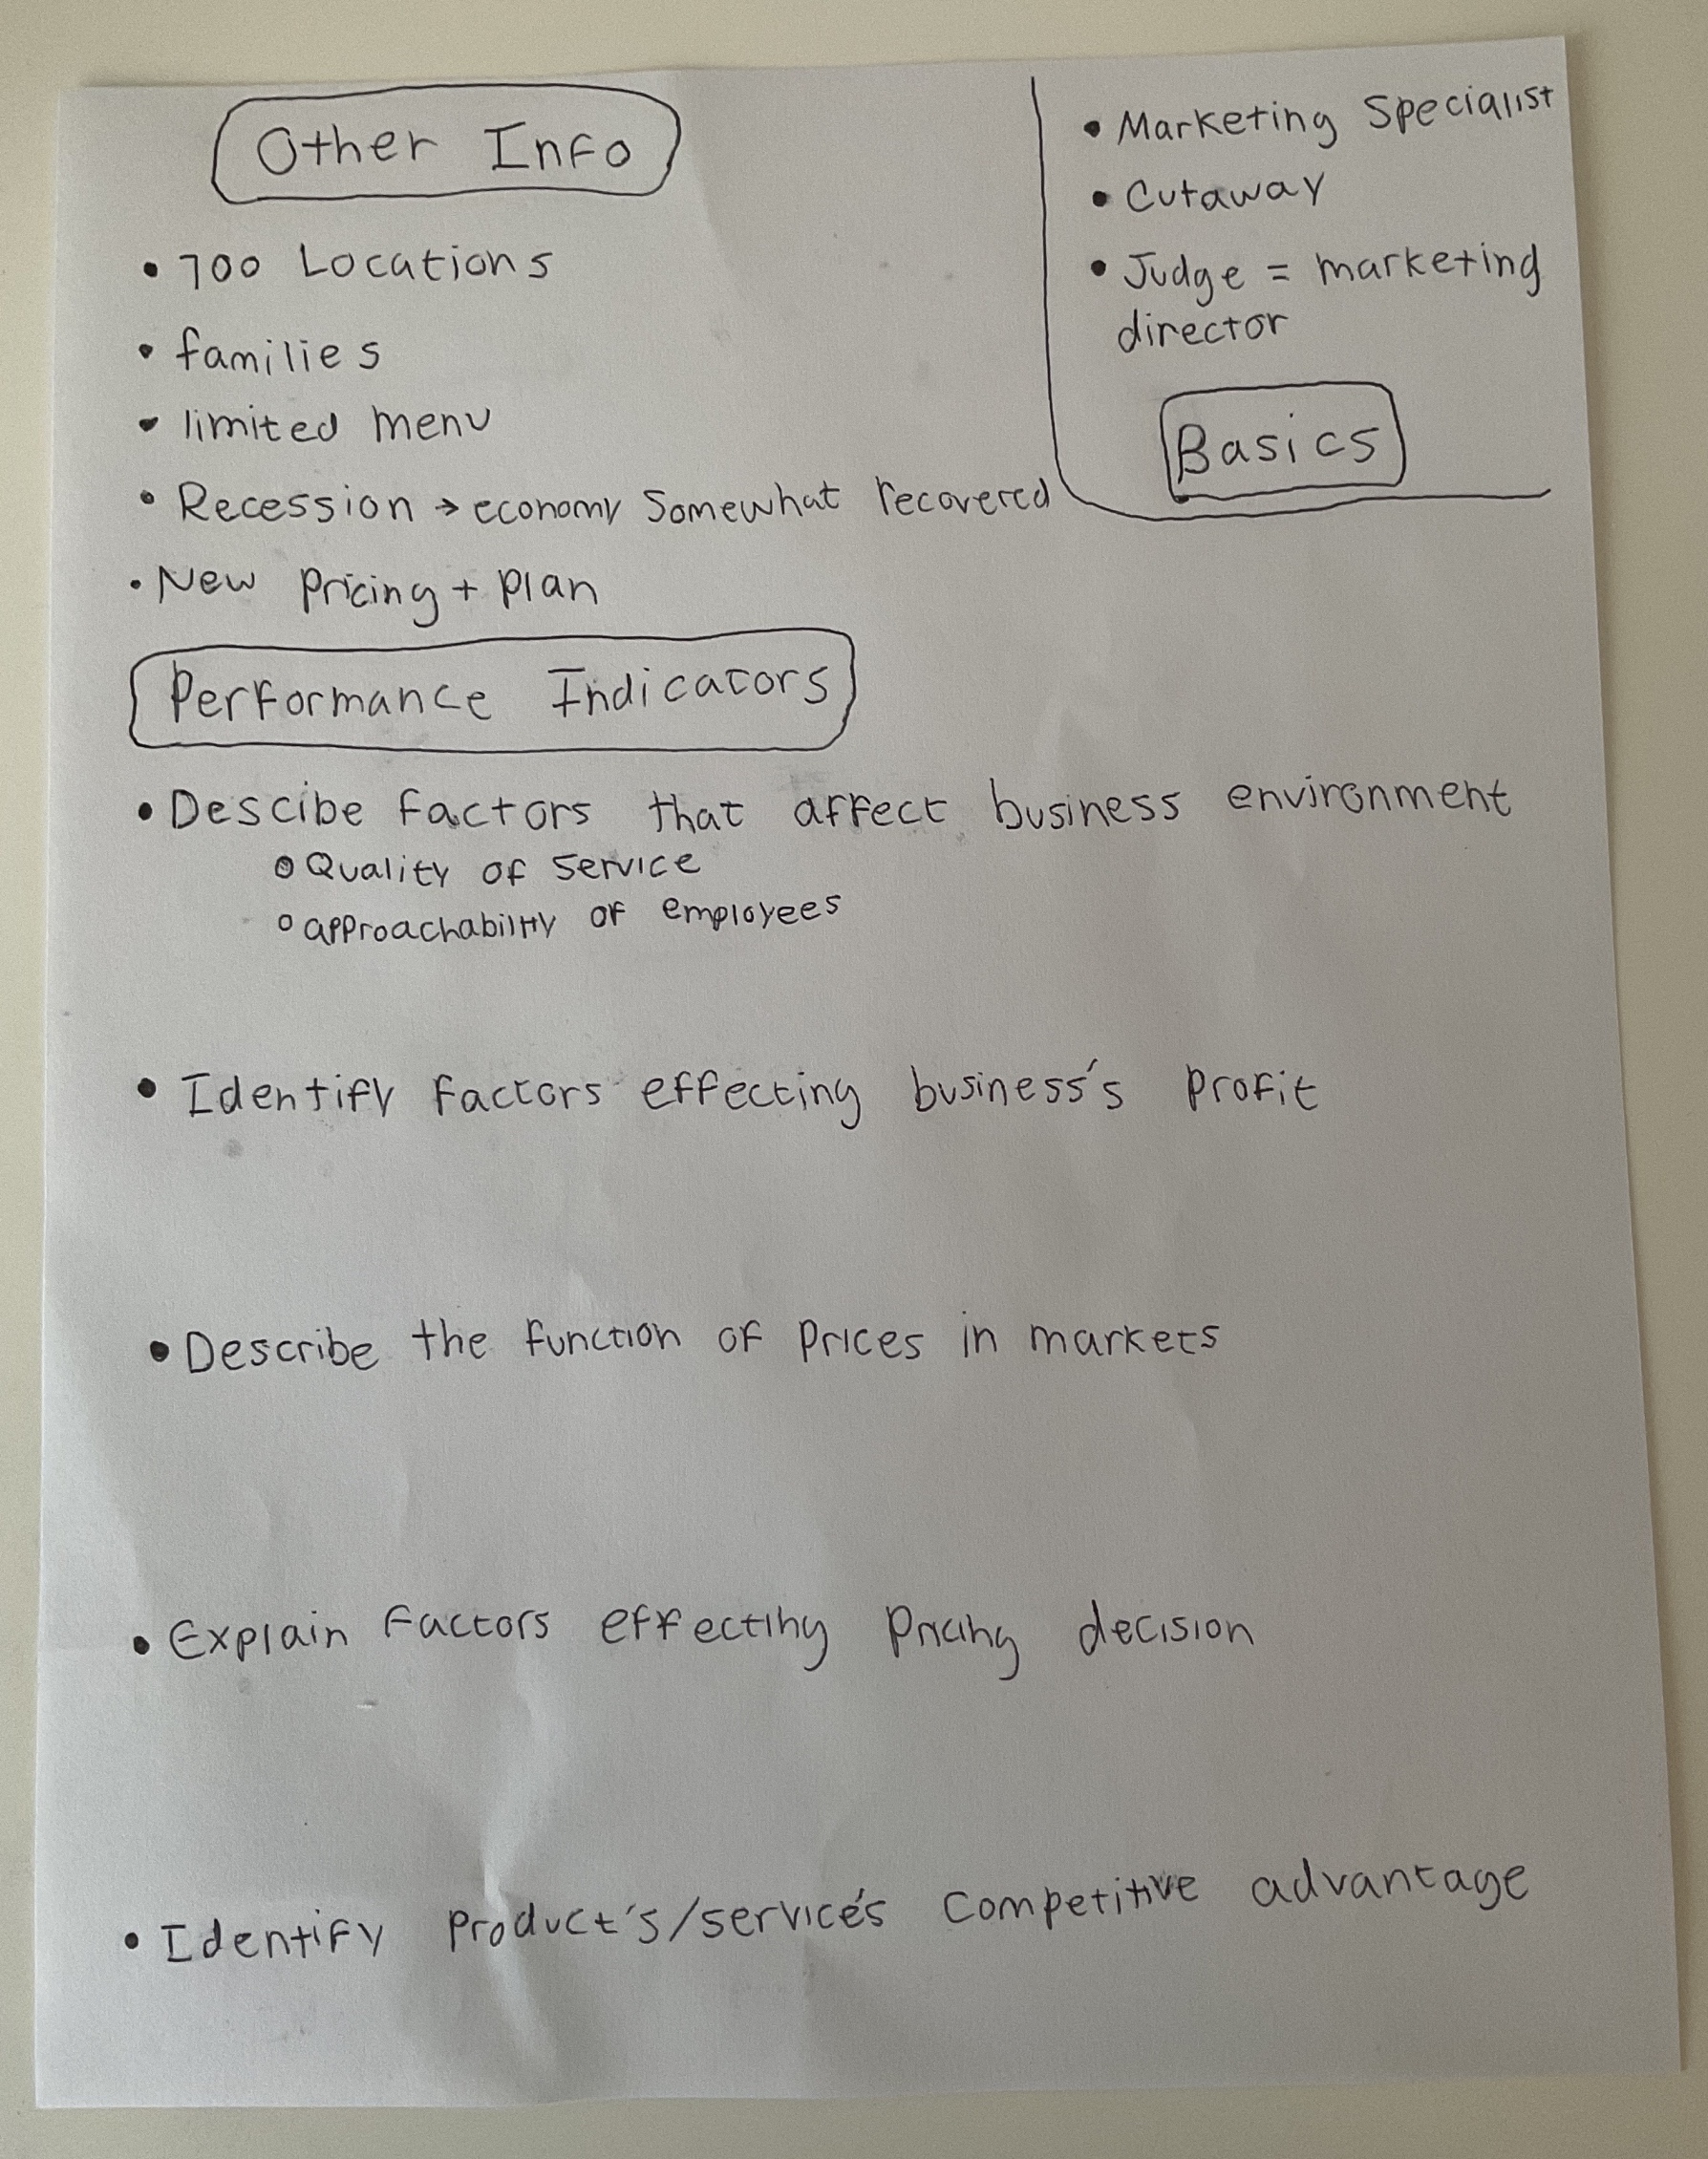 Other Info
• 700 Locations
• families
• limited menu
• Recession → economy somewhat recovered
• New pricing + plan
• Marketing Specialist
• Cutaway
• Judge = marketing
director
Basics
Performance Indicators
• Descibe factors that affect business environment
○ Quality of service
○ approachability of employees
• Identify factors effecting business's profit
• Describe the function of prices in markets
• Explain factors effecting pricing decision
• Identify product's/service's competitive advantage